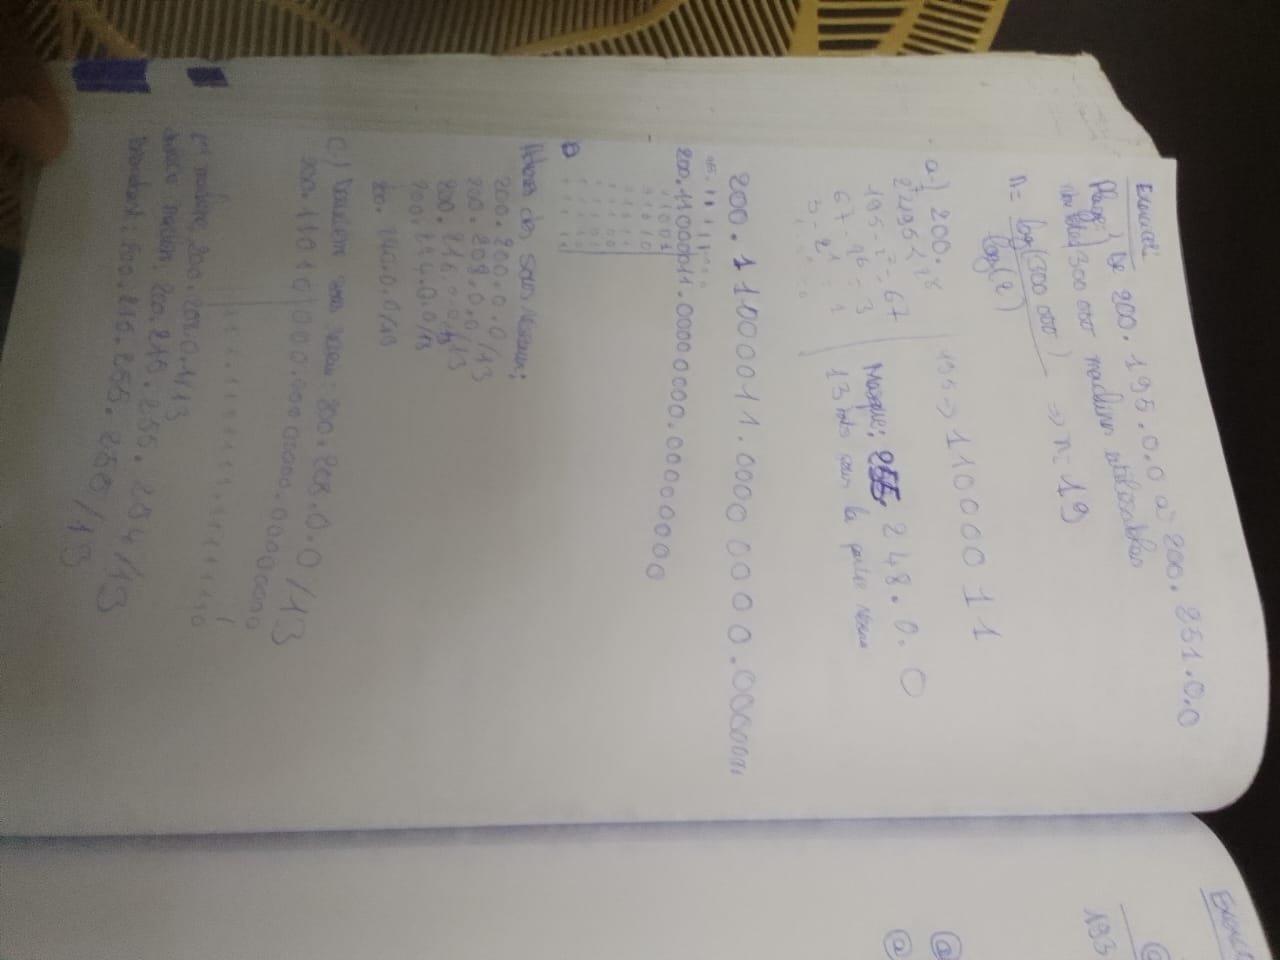 Exercice1:
Plage: De 200.195.0.0 à 200.251.0.0
300 000 machines utilisables
n = log(300 000) / log(2) => n = 19
a-) 200.
2⁷<195<2⁸
195-2⁷=67
67-2⁶=3
3-2¹=1
195=> 11000011
Masque: 255.248.0.0
13 bits pour la partie réseau
200.11000011.00000000.00000000
200.11000011.00000000.00000000
11001
11010
11011
11100
11101
11110
11111
des sous réseaux:
200.200.0.0/13
200.208.0.0/13
200.216.0.0/13
200.224.0.0/13
200.240.0.0/13
C-) Deuxième sous réseau: 200.208.0.0/13
200.11010000.00000000.00000000
111.11111111.11111110
machine: 200.208.0.1/13
machine: 200.215.255.254/13
200.215.255.255/13
Exercice
193